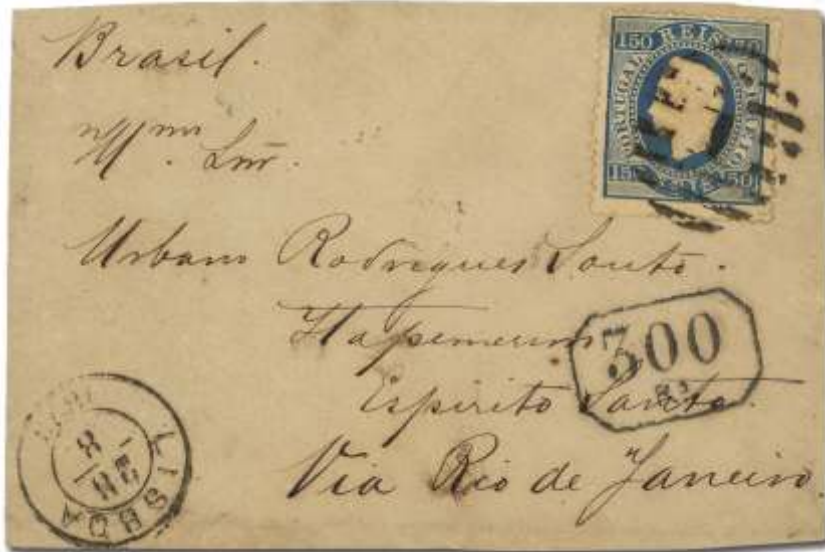 Brasil.
Illmo. Snr.
Urbano Rodrigues Souto.
Itapemerim
Espirito Santo.
Via Rio de Janeiro.
150 REIS
PORTUGAL CORREIO
150 50
300
RS
LISBOA
8